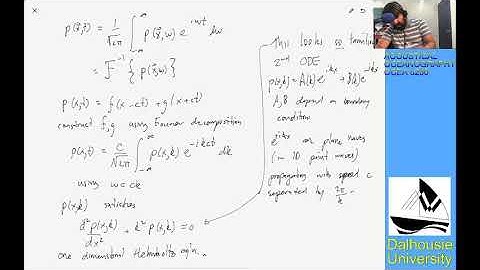 p(x⃗,t) = 1/√2π ∫_{-∞}^{∞} p(x⃗,w) e^{iwt} dw
= F^{-1} { p(x⃗,w) }
p(x,t) = f(x-ct) + g(x+ct)
construct f,g using Fourier decomposition
p(x,t) = c/√2π ∫_{-∞}^{∞} p(x,k) e^{-ikct} dk
using w = ck
p(x,k) satisfies
d²p(x,k)/dx² + k² p(x,k) = 0
one dimensional Helmholtz eq'n.
this looks so familiar
2nd ODE
p(x,k) = A(k) e^{ikx} + B(k) e^{-ikx}
A, B depend on boundary
condition
e^{ikx} plane waves
(in 1D point waves)
propagating with speed c
separated by 2π/k.
ACOUSTICAL
OCEANOGRAPHY
Dalhousie
University